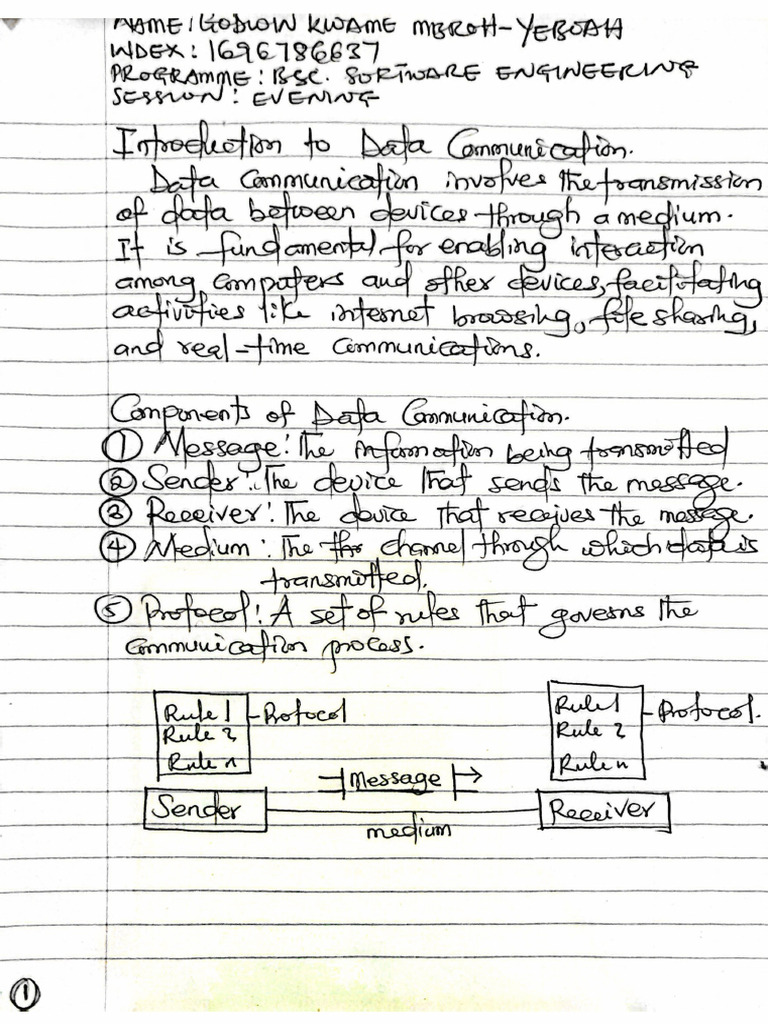 NAME: GODLOW KWAME MBROH-YEBOAH
INDEX: 1696786637
PROGRAMME: BSC. SOFTWARE ENGINEERING
SESSION: EVENING
Introduction to Data Communication.
Data Communication involves the transmission
of data between devices through a medium.
It is fundamental for enabling interaction
among computers and other devices, facilitating
activities like internet browsing, file sharing,
and real-time communications.
Components of Data Communication.
① Message: The information being transmitted
② Sender: The device that sends the message.
③ Receiver: The device that receives the message.
④ Medium: The channel through which data is
transmitted.
⑤ Protocol: A set of rules that governs the
communication process.
Rule 1 - Protocol
Rule 2
Rule n
Rule 1 - Protocol.
Rule 2
Rule n
Message
Sender
medium
Receiver
①